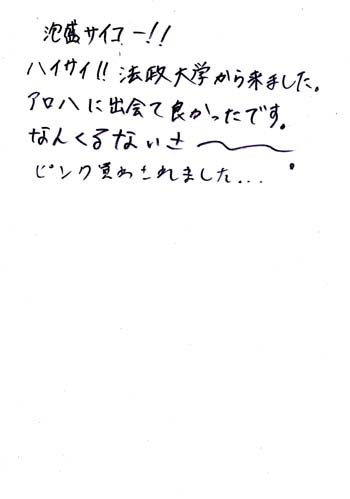 泡盛サイコー!!
ハイサイ!! 法政大学から来ました。
アロハに出会て良かったです。
なんくるないさ〜
ピンク買わされました...